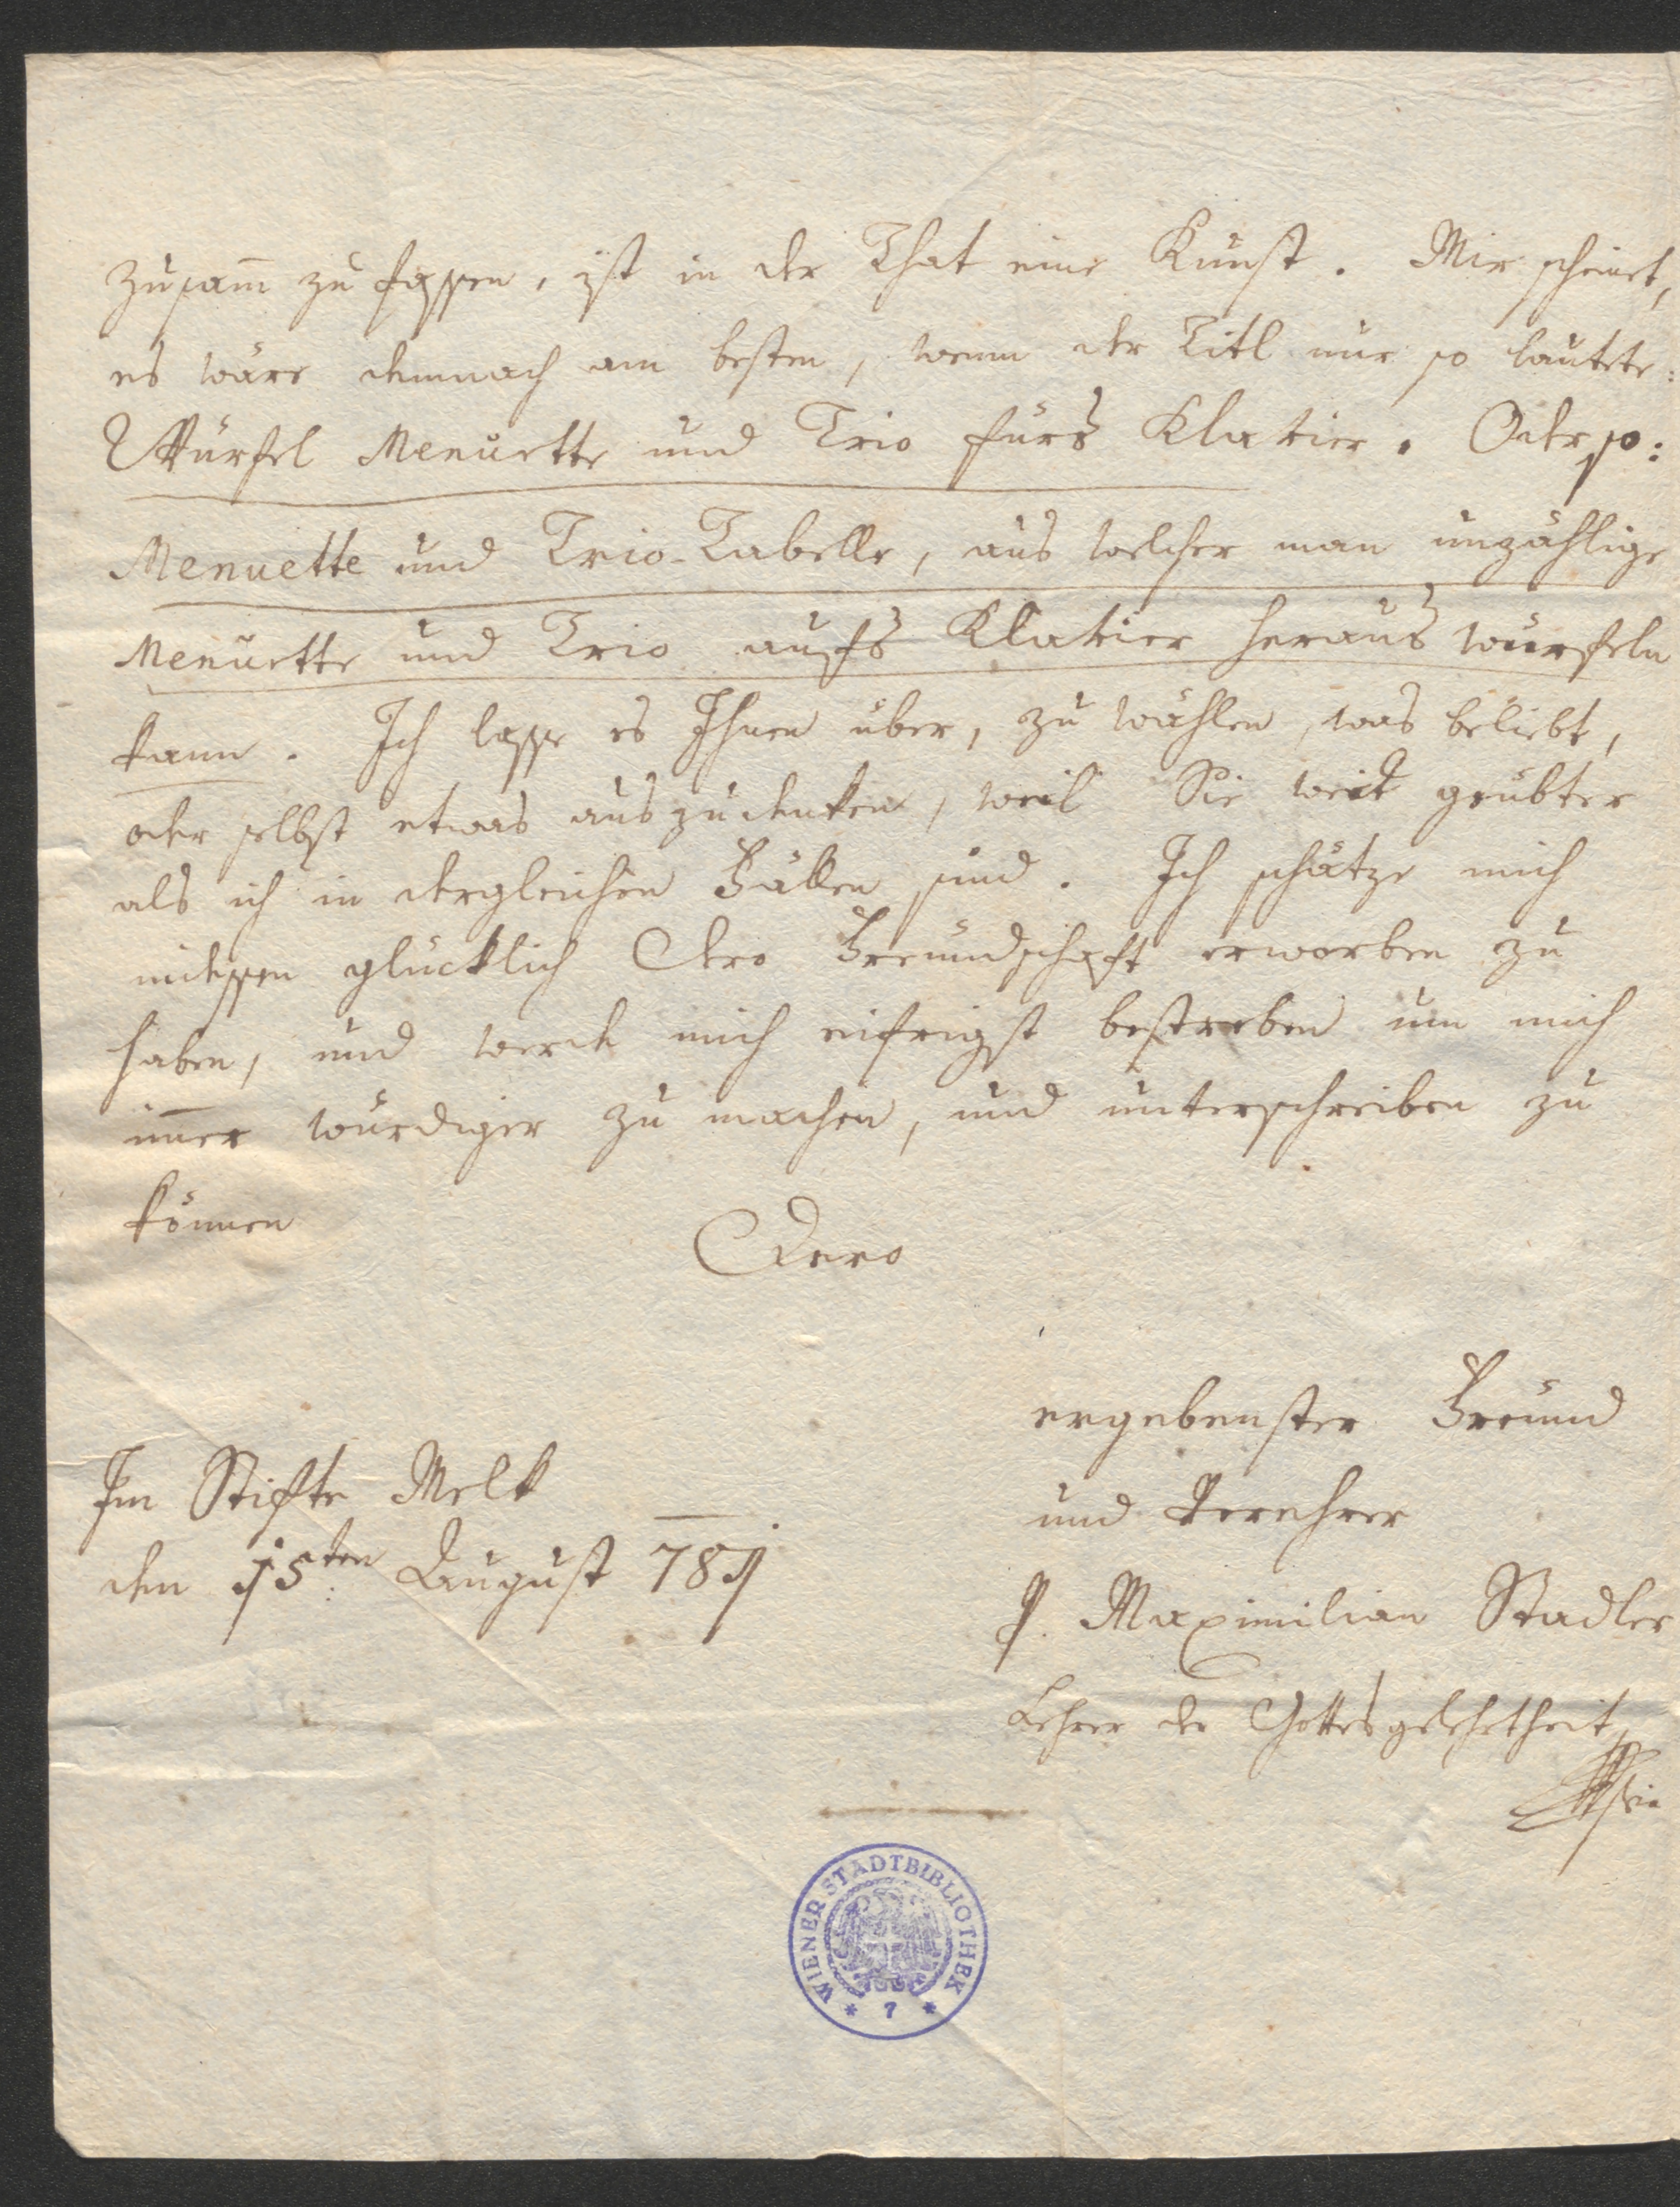 zusam̄ zu fassen, ist in der That eine Kunst. Mir scheinet,
es wäre demnach am besten, wenn der Titl nur so lautete:
Würfel Menuette und Trio fürs Klavier. Oder so:
Menuette und Trio-Tabelle, aus welcher man unzählige
Menuette und Trio aufs Klavier heraus würfeln
kann. Ich lasse es Ihnen über, zu wählen, was beliebt,
oder selbst etwas auszudenken, weil Sie weit geübter
als ich in dergleichen Fällen sind. Ich schätze mich
indessen glücklich Dero Freundschaft erworben zu
haben, und werde mich eifrigst bestreben um mich
im̄er würdiger zu machen, und unterschreiben zu
können
Dero
ergebenster Freund
und Verehrer
P. Maximilian Stadler
Lehrer der Gottesgelehrtheit
Im Stifte Melk
den 15ten August 781
WIENER STADTBIBLIOTHEK
* 7 *